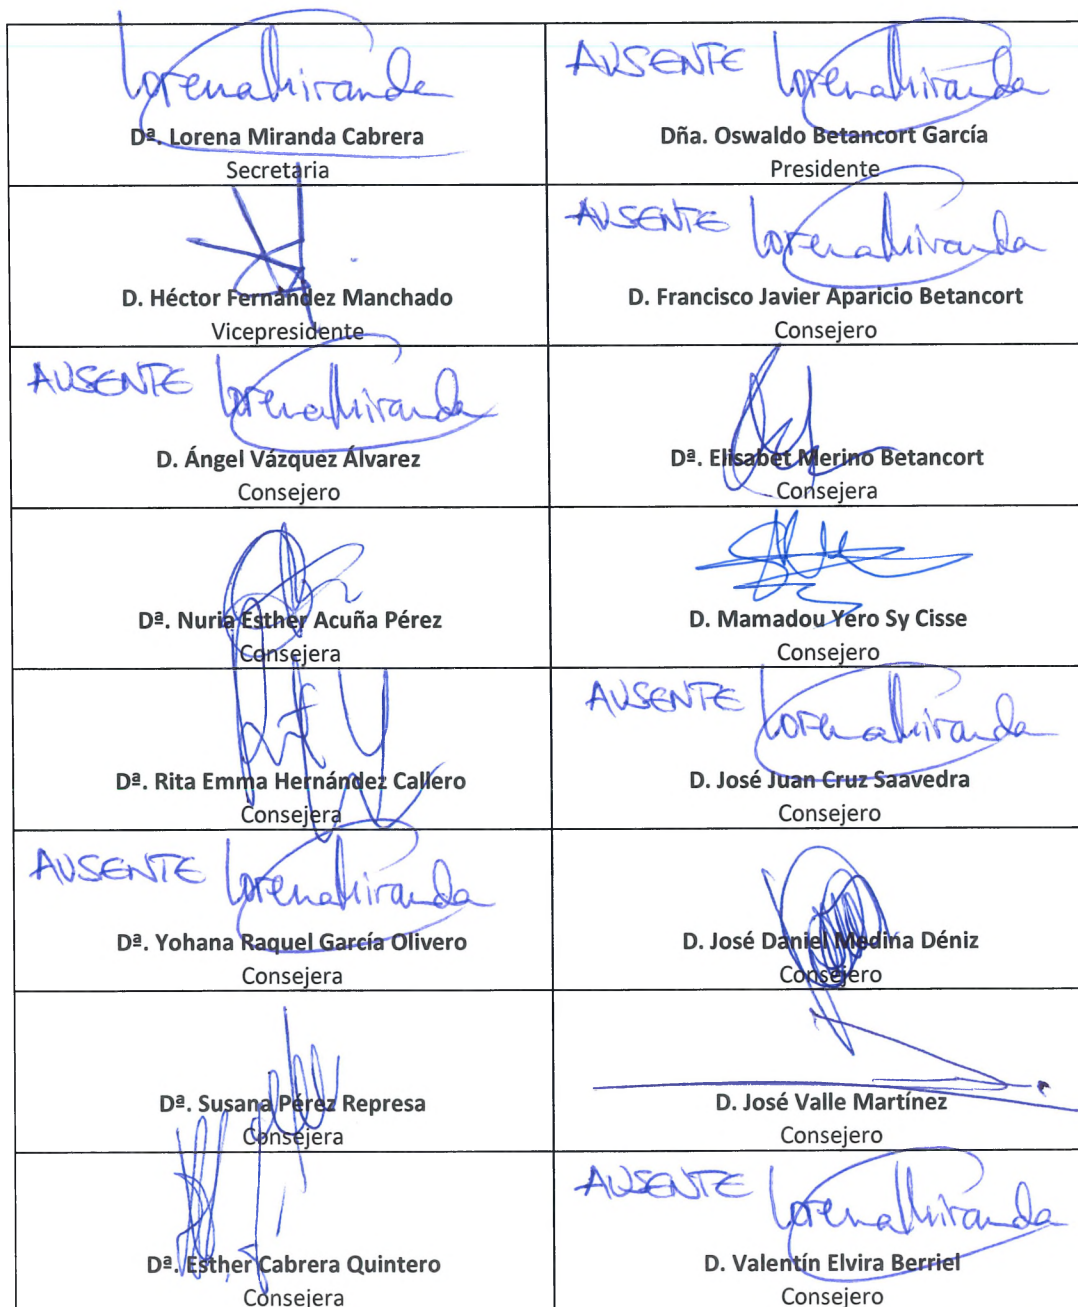 Lorena Miranda
Dª. Lorena Miranda Cabrera
Secretaria
AUSENTE Lorena Miranda
Dña. Oswaldo Betancort García
Presidente
D. Héctor Fernández Manchado
Vicepresidente
AUSENTE Lorena Miranda
D. Francisco Javier Aparicio Betancort
Consejero
AUSENTE Lorena Miranda
D. Ángel Vázquez Álvarez
Consejero
Dª. Elisabet Merino Betancort
Consejera
Dª. Nuria Esther Acuña Pérez
Consejera
D. Mamadou Yero Sy Cisse
Consejero
Dª. Rita Emma Hernández Callero
Consejera
AUSENTE Lorena Miranda
D. José Juan Cruz Saavedra
Consejero
AUSENTE Lorena Miranda
Dª. Yohana Raquel García Olivero
Consejera
D. José Daniel Medina Déniz
Consejero
Dª. Susana Pérez Represa
Consejera
D. José Valle Martínez
Consejero
Dª. Esther Cabrera Quintero
Consejera
AUSENTE Lorena Miranda
D. Valentín Elvira Berriel
Consejero